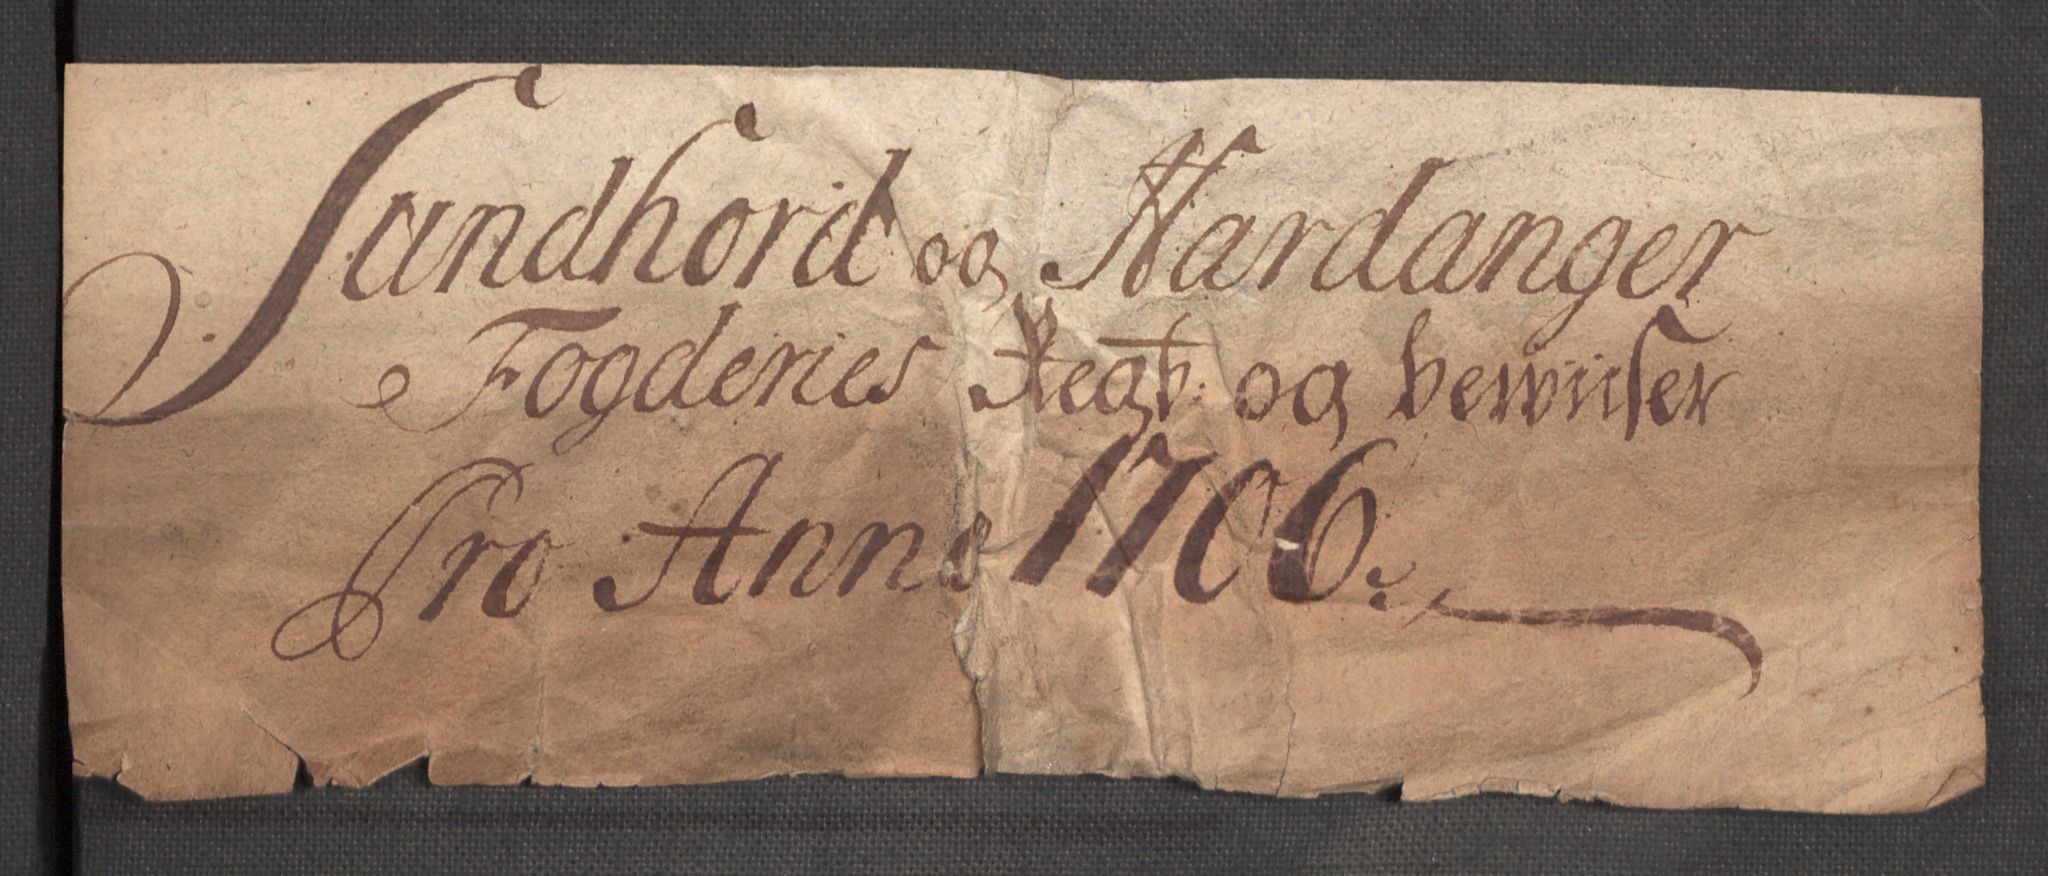 Sundhord og Hardanger
Fogderies Regb: og bewiiser
Pro Anno 1706.